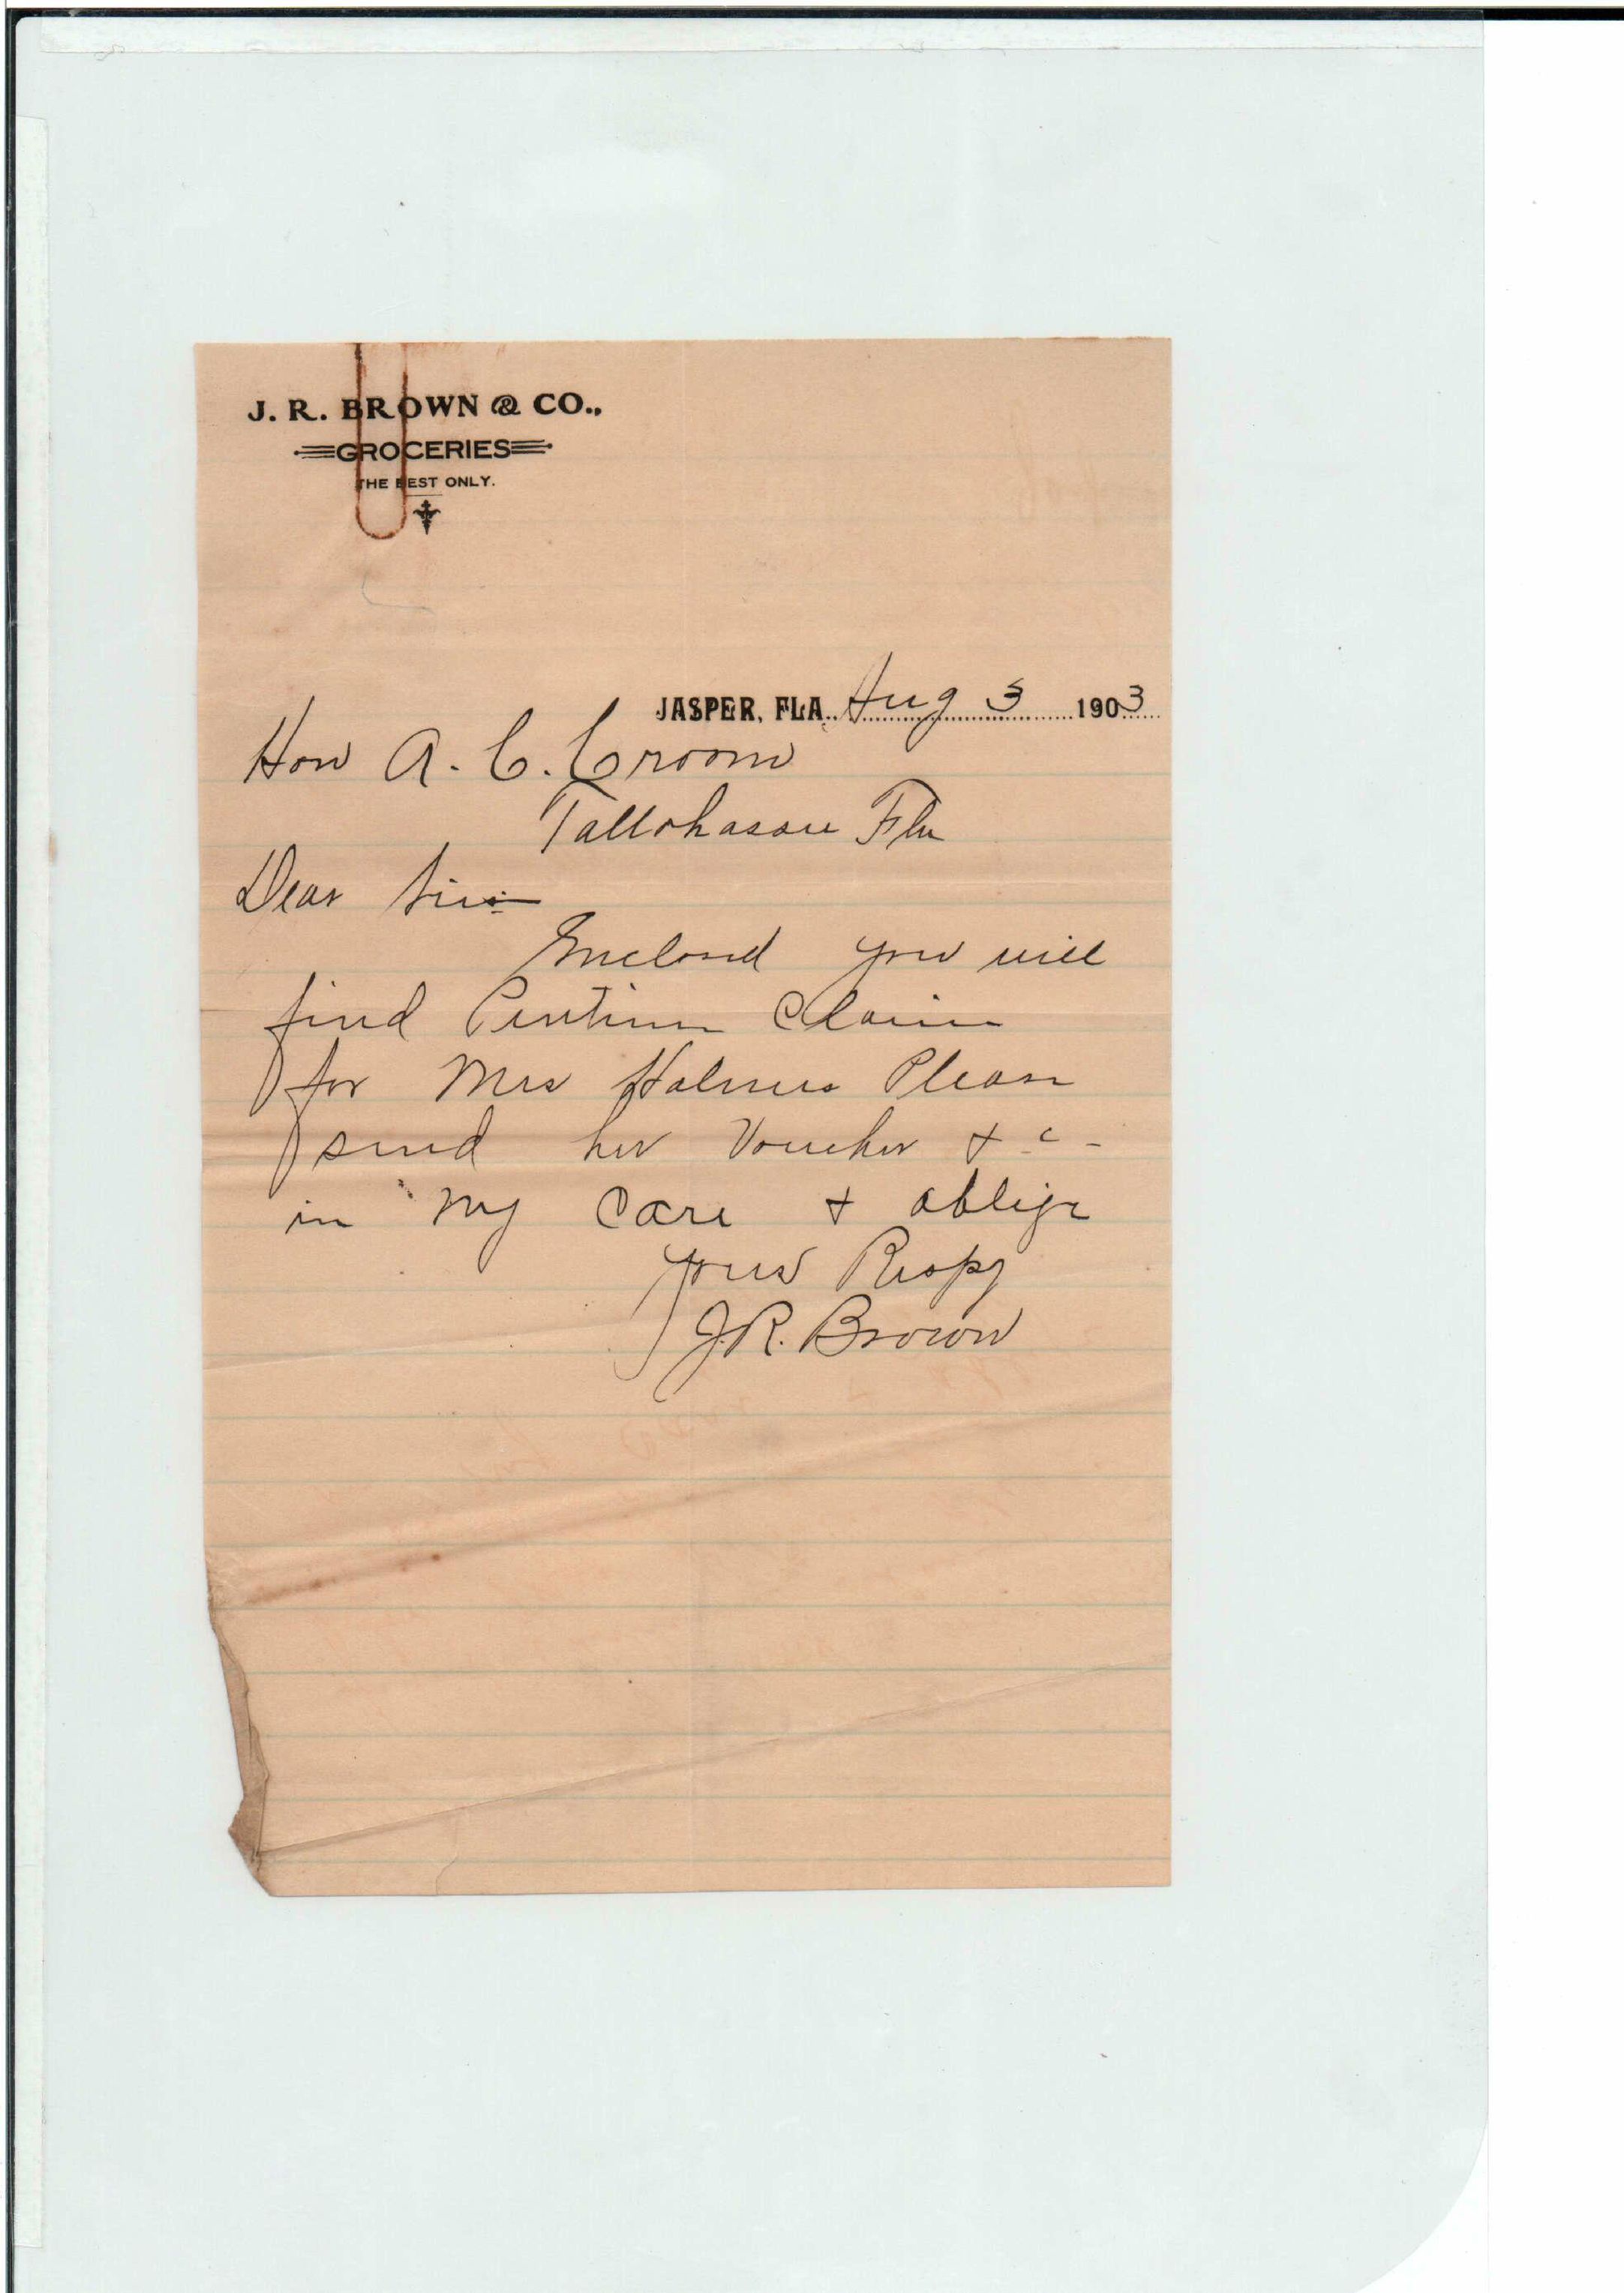 J. R. BROWN & CO.,
GROCERIES
THE BEST ONLY.
JASPER, FLA. Aug 3 1903
Hon A. C. Croom
Tallahassee Fla
Dear Sir:
Enclosed you will
find Pention Claim
for Mrs Holmes Please
send her Voucher + c -
in my care + oblige
yours Respy
J.R. Brown